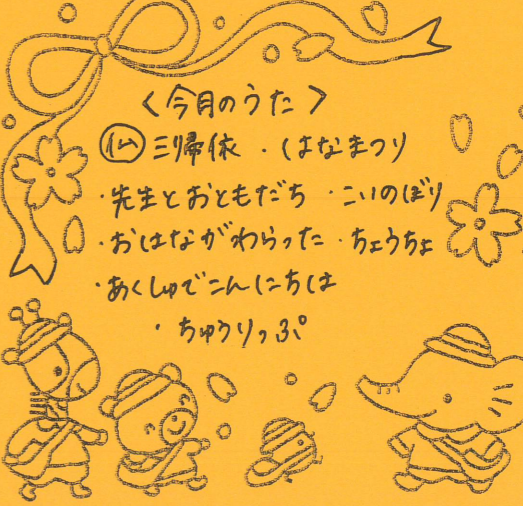 <今月のうた>
㊁三帰依・はなまつり
・先生とおともだち・こいのぼり
・おはながわらった・ちょうちょ
・あくしゅでこんにちは
・ちゅうりっぷ